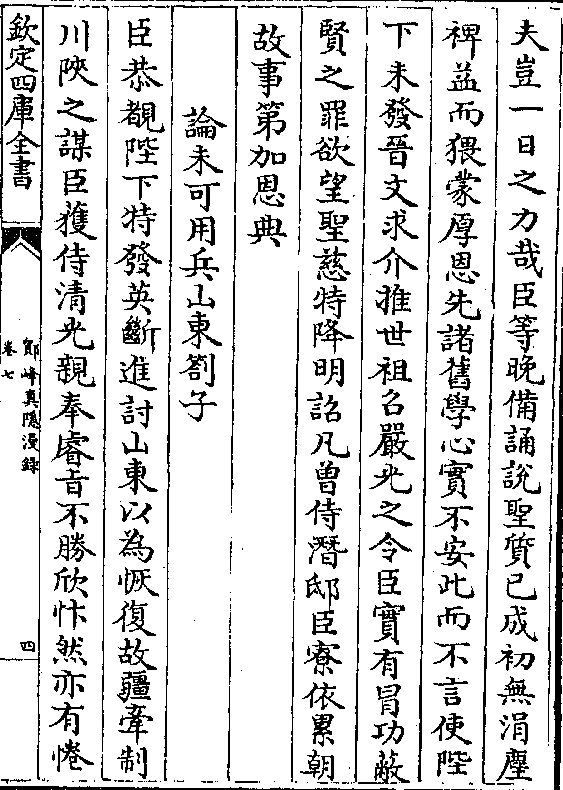 夫豈一日之力哉臣等晚備誦說聖質已成初無涓塵
裨益而猥蒙厚恩先諸舊學心實不安此而不言使陛
下未發晉文求介推世祖召嚴光之令臣實有冒功蔽
賢之罪欲望聖慈特降明詔凡曾侍潛邸臣寮依累朝
故事第加恩典
論未可用兵山東劄子
臣恭覩陛下特發英斷進討山東以為恢復故疆牽制
川陜之謀臣獲侍清光親奉睿旨不勝欣忭然亦有惓
欽定四庫全書
鄮峰真隱漫錄
卷七
四